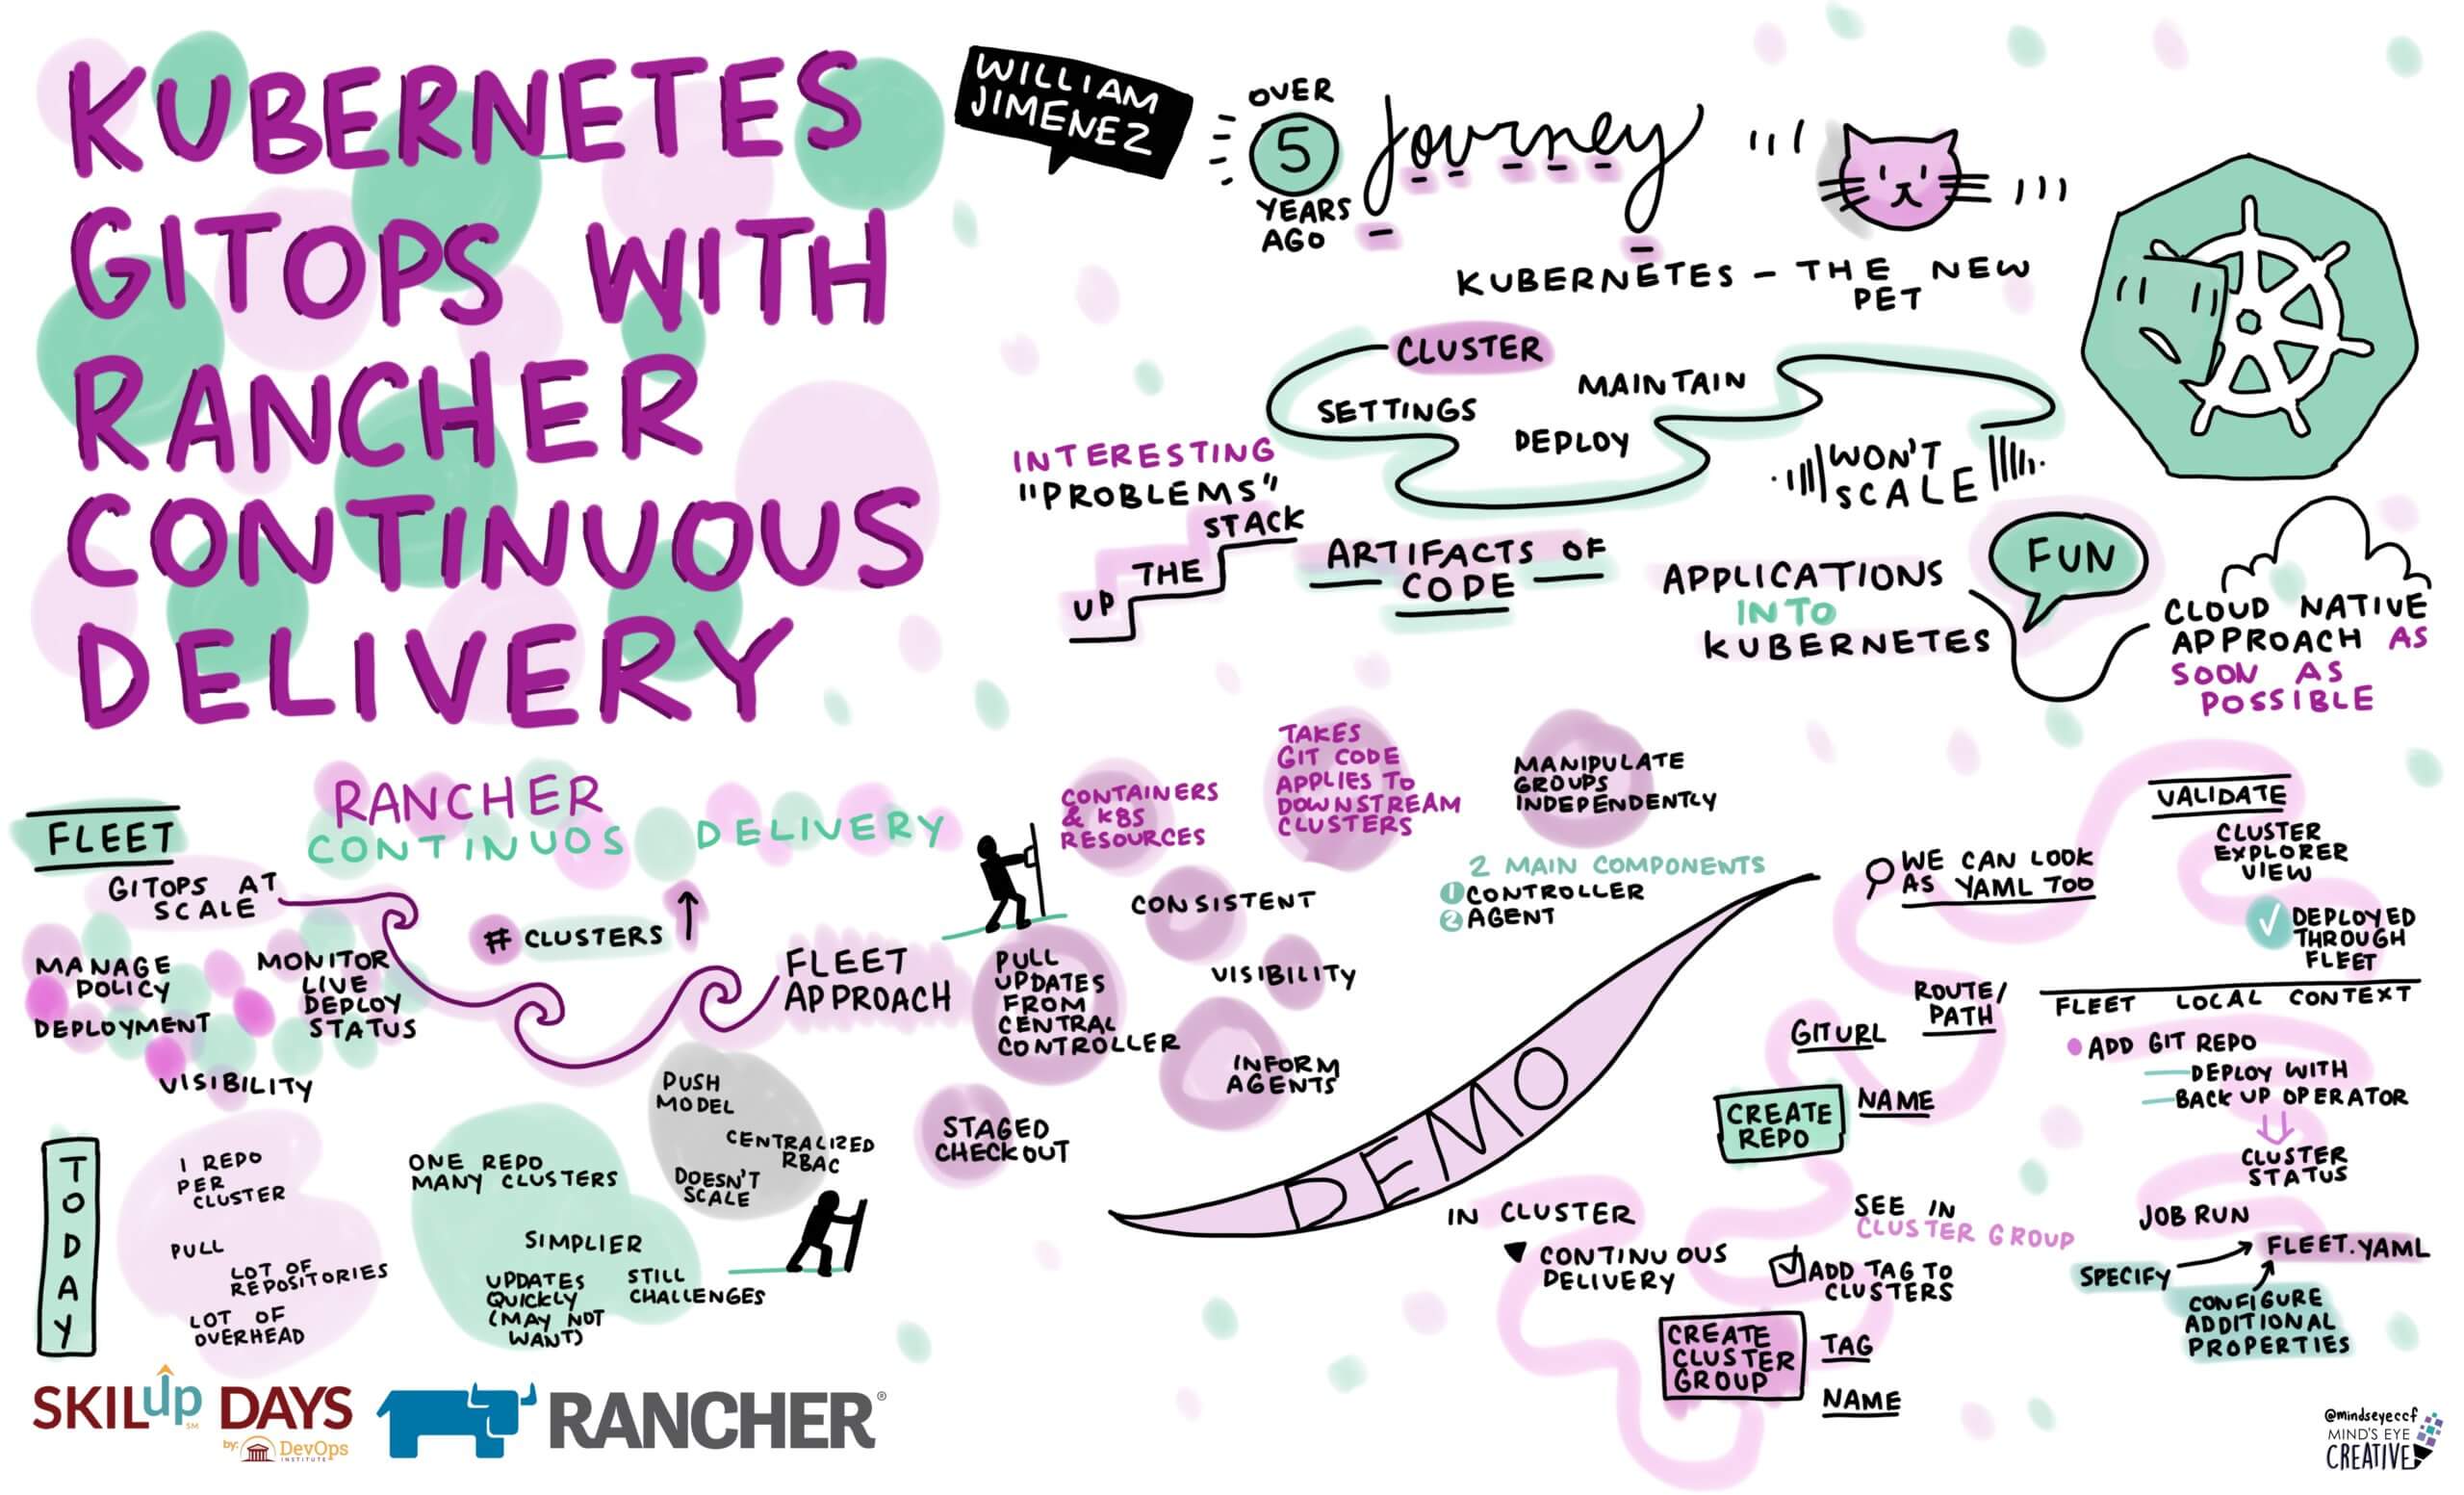 KUBERNETES
GITOPS WITH
RANCHER
CONTINUOUS
DELIVERY
WILLIAM
JIMENEZ
OVER
5
YEARS
AGO
Journey
KUBERNETES - THE NEW
PET
CLUSTER
SETTINGS
DEPLOY
MAINTAIN
WON'T
SCALE
INTERESTING
"PROBLEMS"
UP
THE
STACK
ARTIFACTS OF
CODE
APPLICATIONS
INTO
KUBERNETES
FUN
CLOUD NATIVE
APPROACH AS
SOON AS
POSSIBLE
FLEET
RANCHER
CONTINUOS DELIVERY
GITOPS AT
SCALE
MANAGE
POLICY
DEPLOYMENT
MONITOR
LIVE
DEPLOY
STATUS
VISIBILITY
# CLUSTERS ↑
FLEET
APPROACH
CONTAINERS
& K8S
RESOURCES
TAKES
GIT CODE
APPLIES TO
DOWNSTREAM
CLUSTERS
MANIPULATE
GROUPS
INDEPENDENTLY
CONSISTENT
PULL
UPDATES
FROM
CENTRAL
CONTROLLER
VISIBILITY
INFORM
AGENTS
STAGED
CHECKOUT
2 MAIN COMPONENTS
1 CONTROLLER
2 AGENT
TODAY
1 REPO
PER
CLUSTER
PULL
LOT OF
REPOSITORIES
LOT OF
OVERHEAD
ONE REPO
MANY CLUSTERS
SIMPLIER
UPDATES
QUICKLY
(MAY NOT
WANT)
STILL
CHALLENGES
PUSH
MODEL
CENTRALIZED
RBAC
DOESN'T
SCALE
DEMO
IN CLUSTER
▼ CONTINUOUS
DELIVERY
CREATE
CLUSTER
GROUP
TAG
NAME
ADD TAG TO
CLUSTERS
SEE IN
CLUSTER GROUP
CREATE
REPO
NAME
GIT URL
ROUTE/
PATH
WE CAN LOOK
AS YAML TOO
VALIDATE
CLUSTER
EXPLORER
VIEW
DEPLOYED
THROUGH
FLEET
FLEET LOCAL CONTEXT
ADD GIT REPO
DEPLOY WITH
BACK UP OPERATOR
CLUSTER
STATUS
JOB RUN
FLEET.YAML
SPECIFY
CONFIGURE
ADDITIONAL
PROPERTIES
SKILup DAYS
SM
by: DevOps
INSTITUTE
RANCHER®
@mindseyeccf
MIND'S EYE
CREATIVE